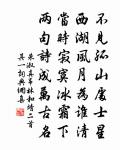 不見孤山處士星
西湖風月為誰清
當時寂寞冰霜下
两句詩成萬古名
朱淑真吊林和靖二首
其一詞典網集